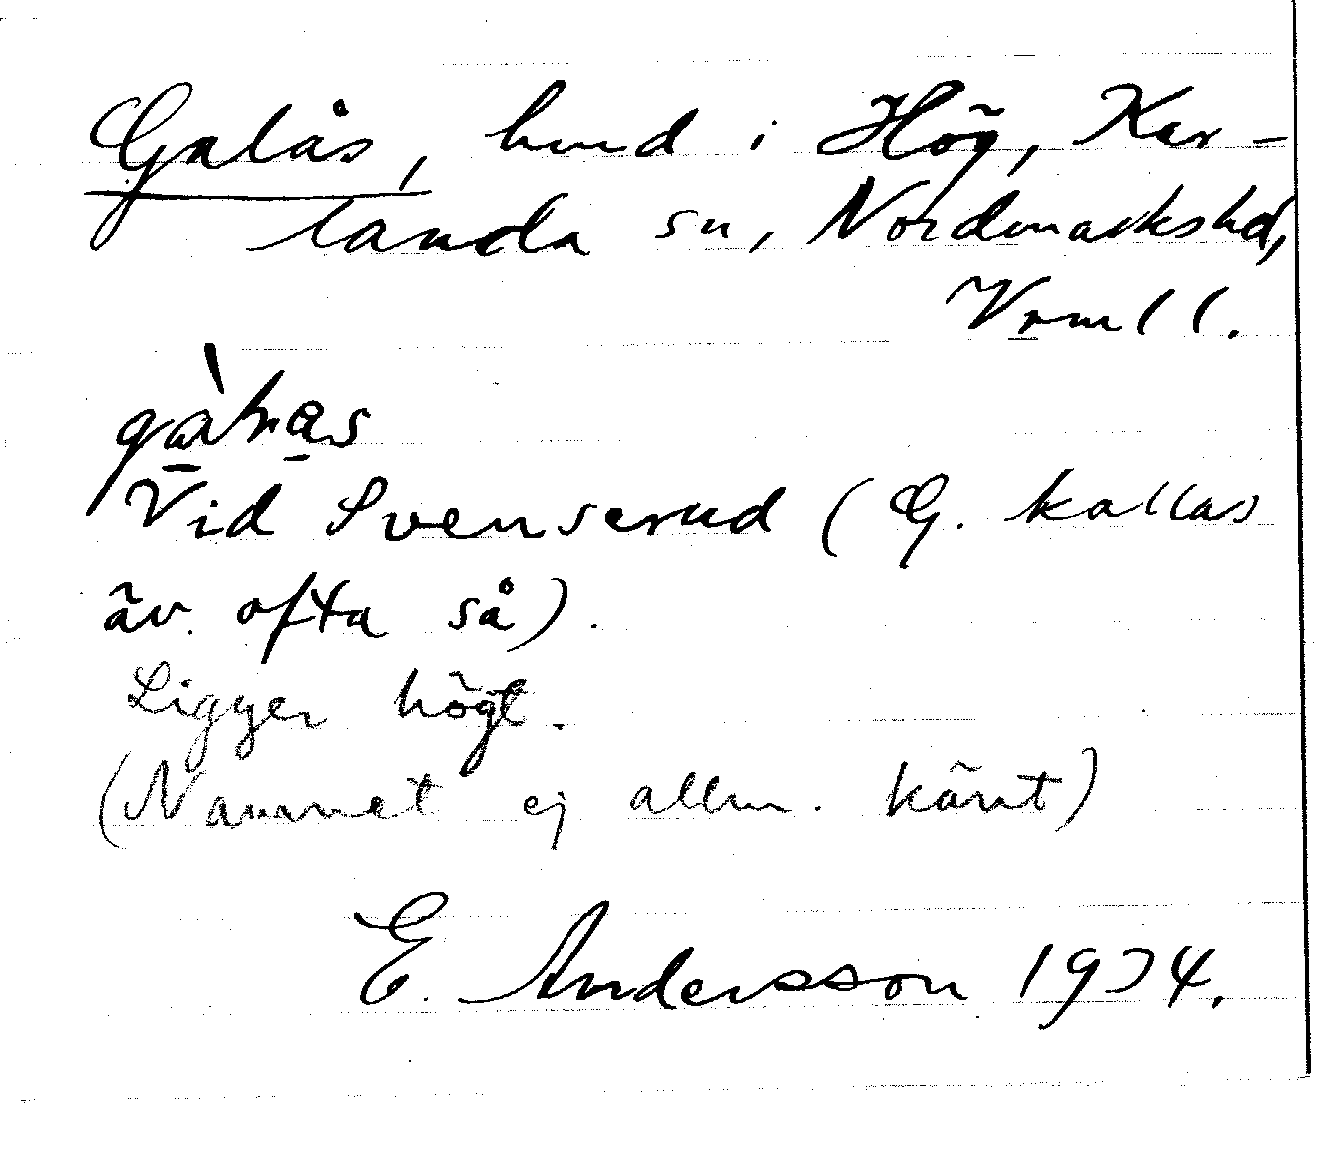 Galås, hmd i Hög, Kar-
landa sn, Nordmarkshd,
Vrml l.
Vid Svenserud (G. kallas
äv. ofta så).
Ligger högt.
(Namnet ej allm. känt)
E. Andersson 1934.